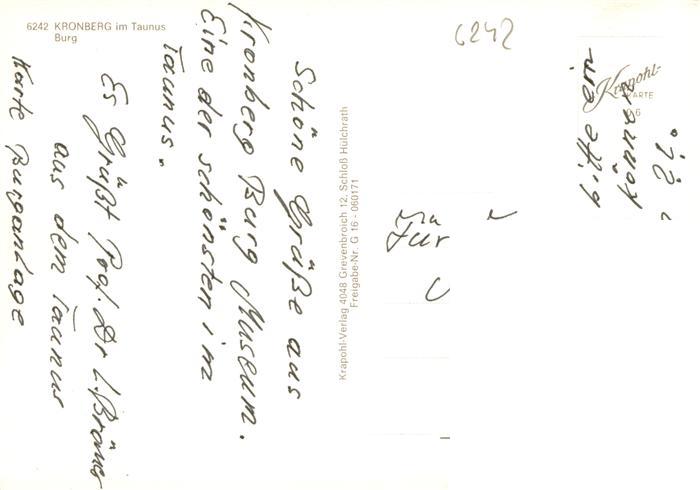 6242 KRONBERG im Taunus
Burg
Schöne Grüße aus
Kronberg Burg Museum.
Eine der schönsten im
Taunus.
Es Grüßt Prof. Dr. L. Bräuer
aus dem Taunus
Karte Burganlage
Krapohl-Verlag 4048 Grevenbroich 12, Schloß Hülchrath
Freigabe-Nr. G 16 - 060171
6242
Krapohl-
KARTE
Für